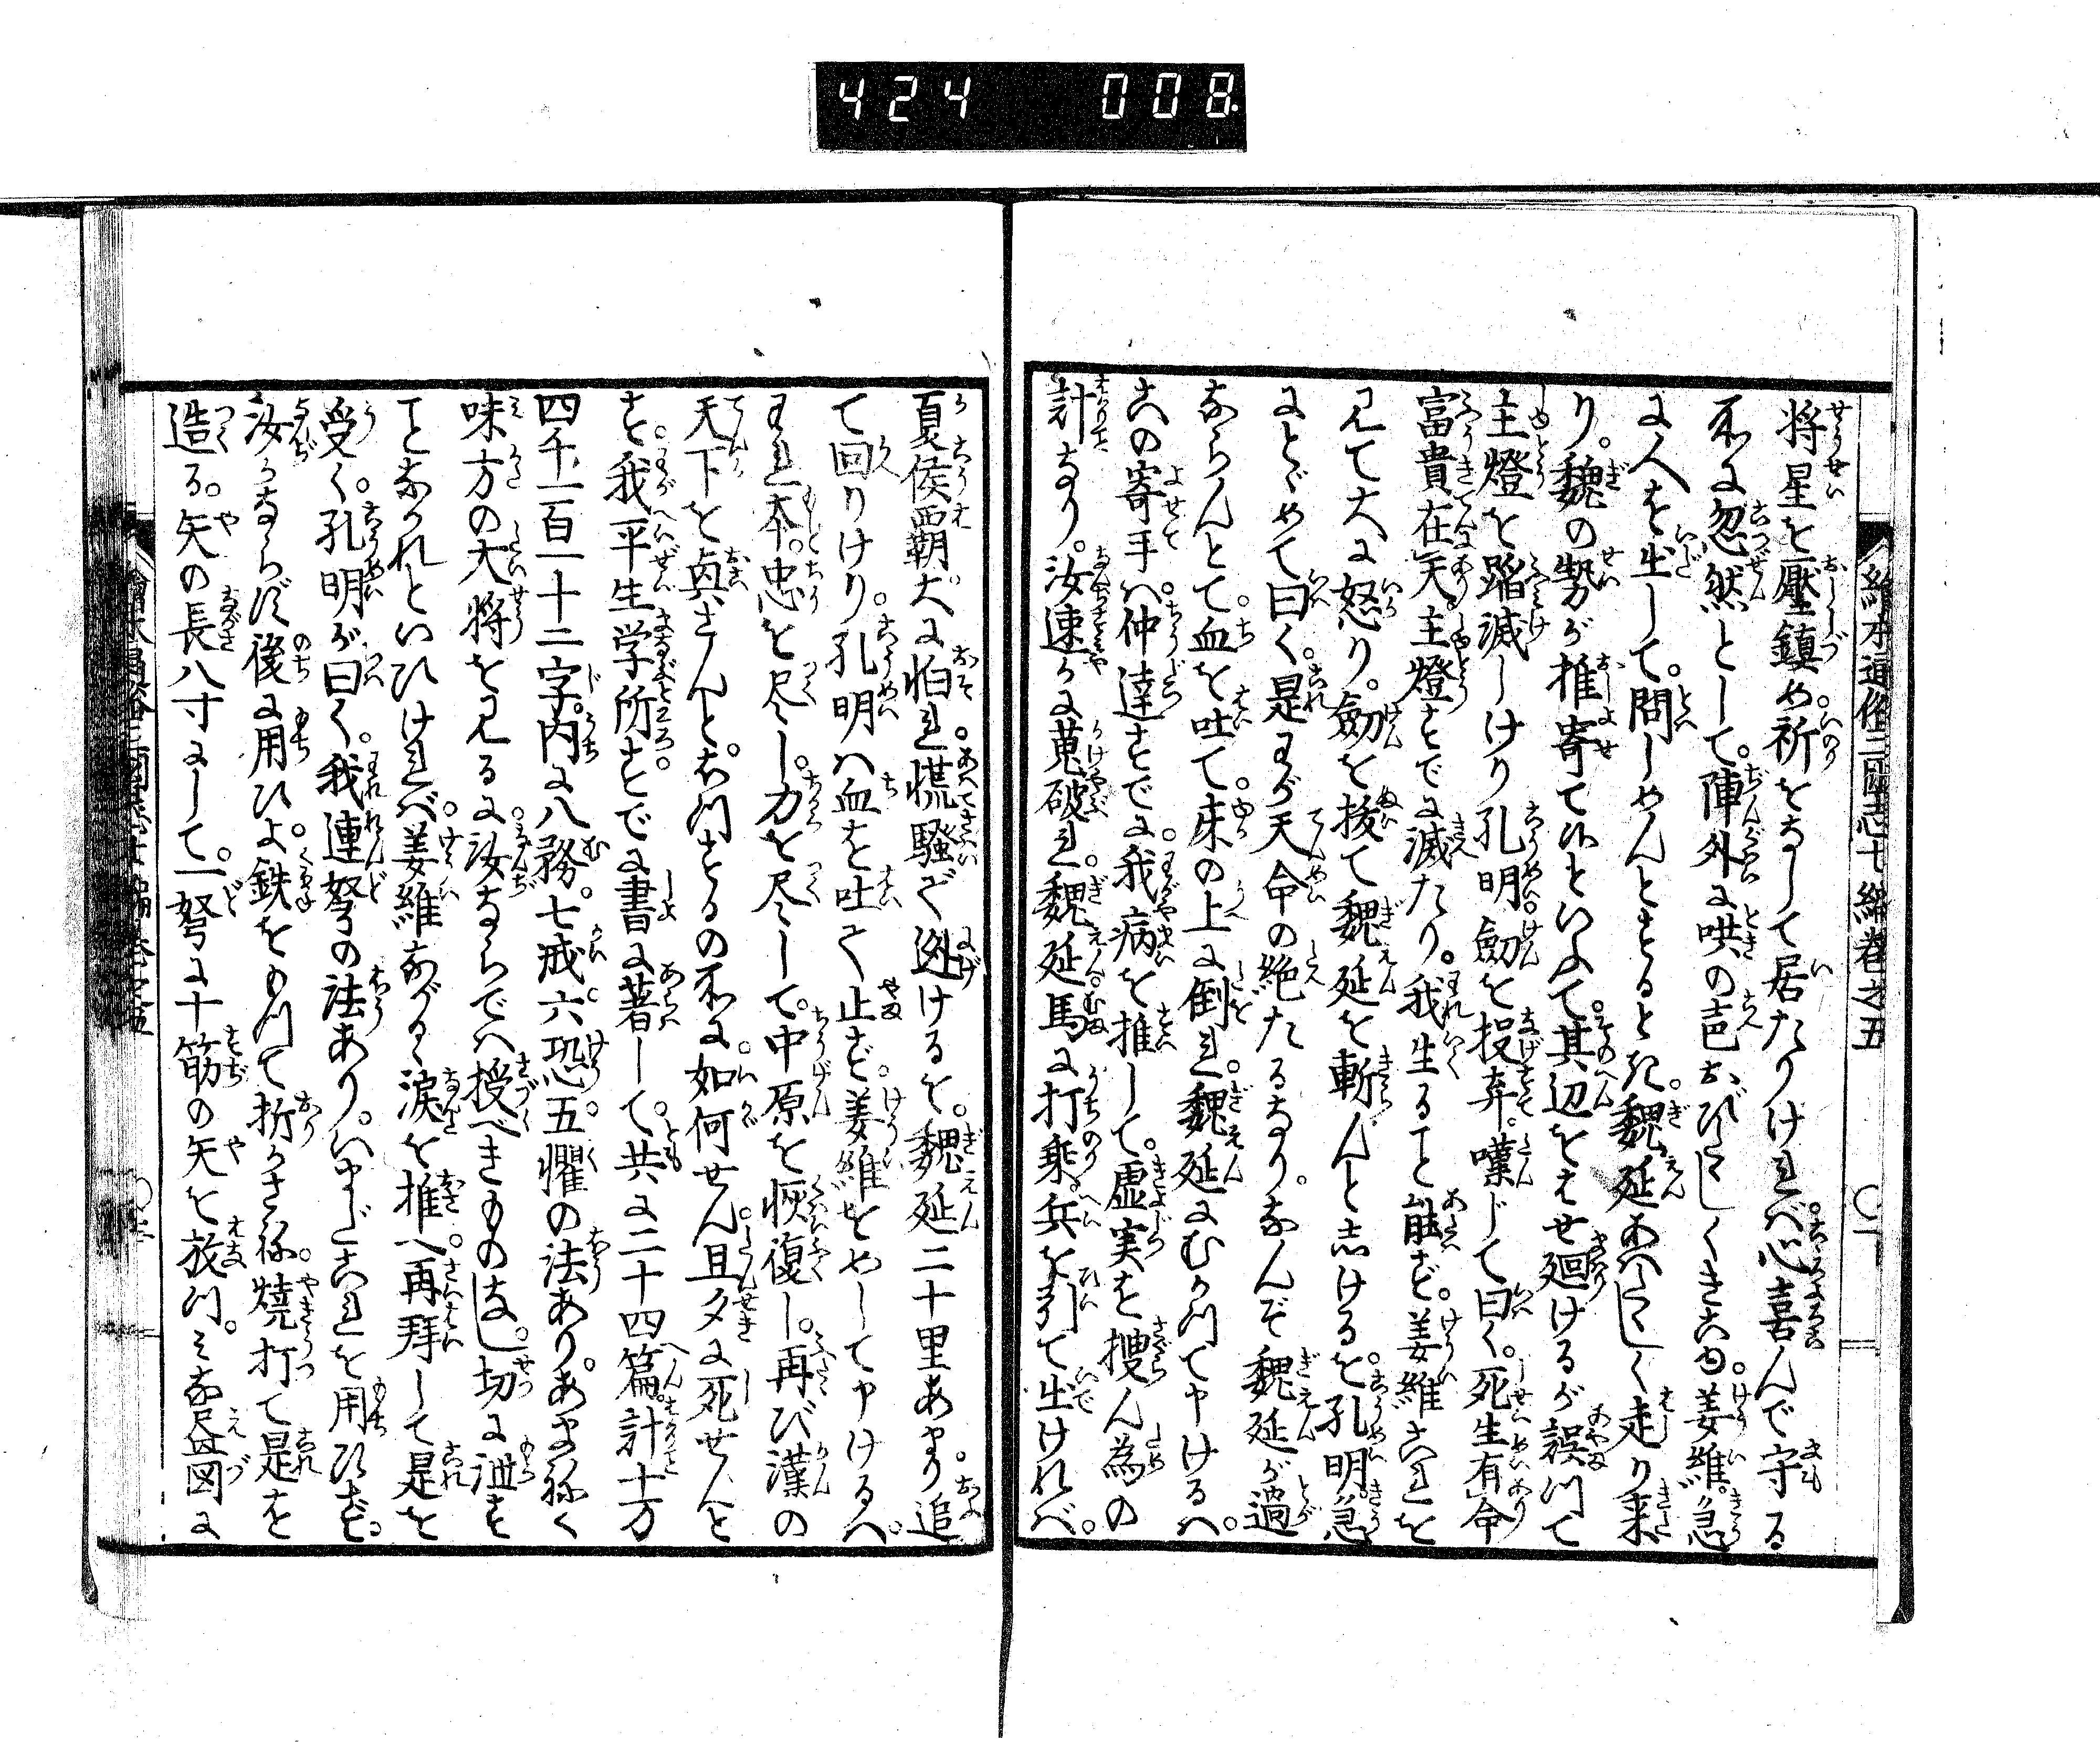 424 008
絵本通俗三国志七編巻之五
将星を壓鎮め祈をなして居たりければ。心喜んで守る
所に忽然として。陣外に哄の声おびたゝしくきこゆ。姜維。急
に人を出して。問しめんとするとき。魏延あハたゝしく走り来
り。魏の勢が推寄て候といふて。其辺をはせ廻けるが誤つて
主燈を踏滅しけり孔明。劔を投弃。嘆じて曰く。死生有命
富貴在天。主燈すでに滅たり。我生ること能ず。姜維これを
見て大に怒り。劔を抜て魏延を斬んとしけるを。孔明。急
にとゞめて曰く。是わが天命の絶たるなり。なんぞ魏延が過
ならんとて。血を吐て。床の上に倒れ。魏延にむかつて申けるハ。
この寄手ハ。仲達すでに。我病を推して。虚実を捜ん為の
計なり。汝速かに蒐破れ。魏延。馬に打乗。兵を引て出ければ。
夏侯覇大に怕れ。慌騒で迯けるを。魏延二十里あまり追
て回りけり。孔明ハ血を吐て止ず。姜維をめして申けるハ。
われ本。忠を尽し。力を尽して。中原を恢復し。再び漢の
天下を興さんと。おもつするの所に。如何せん且夕に死せんと
す。我平生学所。すでに書に著して。共に二十四篇。計十万
四千一百一十二字。内に八務。七戒。六恐。五懼の法あり。あまねく
味方の大将を見るに。汝ならでハ授べきものなし。切に泄す
ことなかれといひければ。姜維ながく涙を推へ。再拝して是を
受く。孔明が曰く。我連弩の法あり。いまだこれを用ひず。
汝かならず後に用ひよ。鉄をもつて折かさね。焼打て是を
造る。矢の長八寸にして。一弩に十筋の矢を放つ。みな尽図に